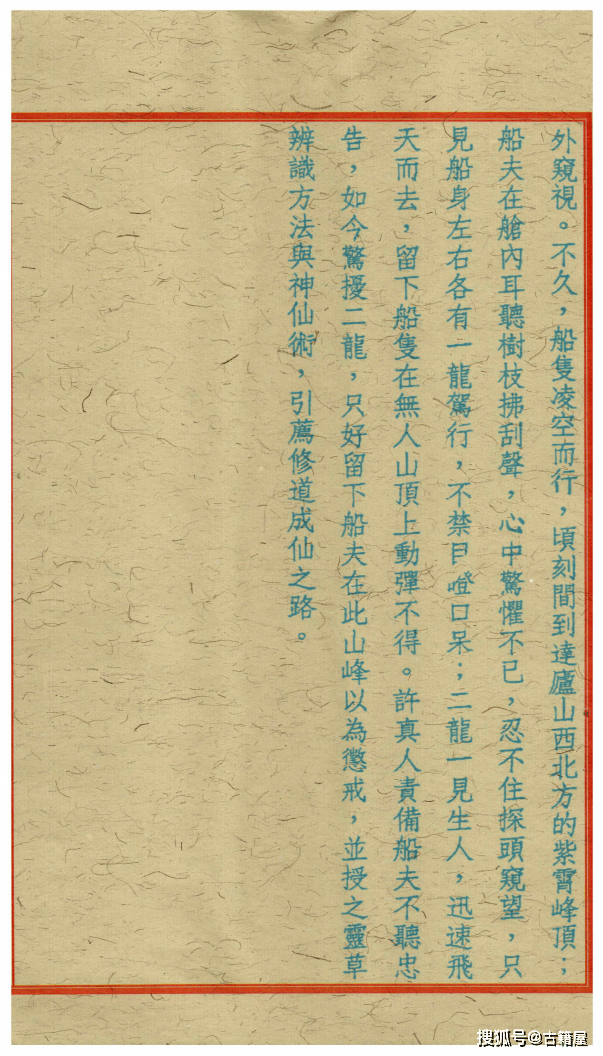 外窺視。不久，船隻凌空而行，頃刻間到達廬山西北方的紫霄峰頂；
船夫在艙內耳聽樹枝拂刮聲，心中驚懼不已，忍不住探頭窺望，只
見船身左右各有一龍駕行，不禁目瞪口呆；二龍一見生人，迅速飛
天而去，留下船隻在無人山頂上動彈不得。許真人責備船夫不聽忠
告，如今驚擾二龍，只好留下船夫在此山峰以為懲戒，並授之靈草
辨識方法與神仙術，引薦修道成仙之路。
搜狐号@古籍屋